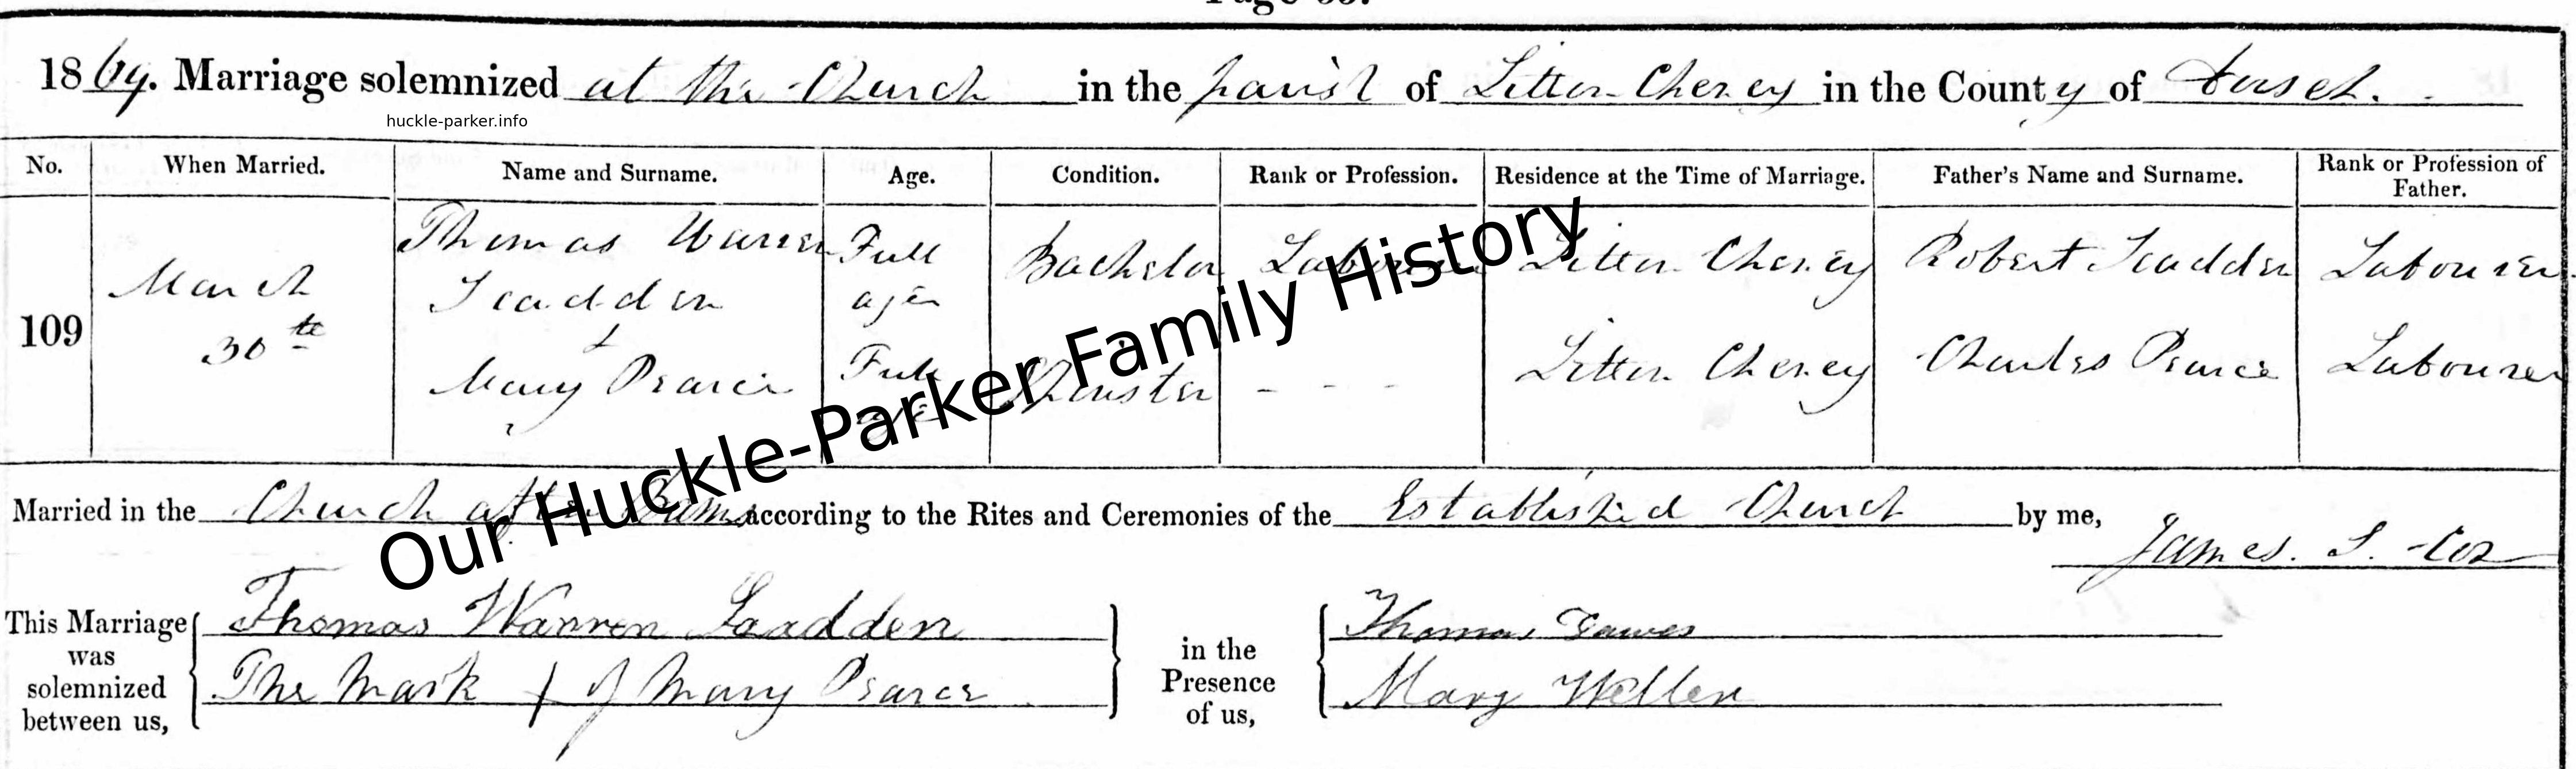 1869. Marriage solemnized at the Church in the parish of Litton Cheney in the County of Dorset.
huckle-parker.info
No. When Married. Name and Surname. Age. Condition. Rank or Profession. Residence at the Time of Marriage. Father's Name and Surname. Rank or Profession of Father.
109 March 30th Thomas Warren Scadden Full age Bachelor Labourer Litton Cheney Robert Scadden Labourer
& Mary Pearce Full age Spinster - - - Litton Cheney Charles Pearce Labourer
Our Huckle-Parker Family History
Married in the Church after Banns according to the Rites and Ceremonies of the Established Church by me,
James. S. Cox
This Marriage was solemnized between us,
Thomas Warren Scadden
The Mark X of Mary Pearce
in the Presence of us,
Thomas
Mary Wellen